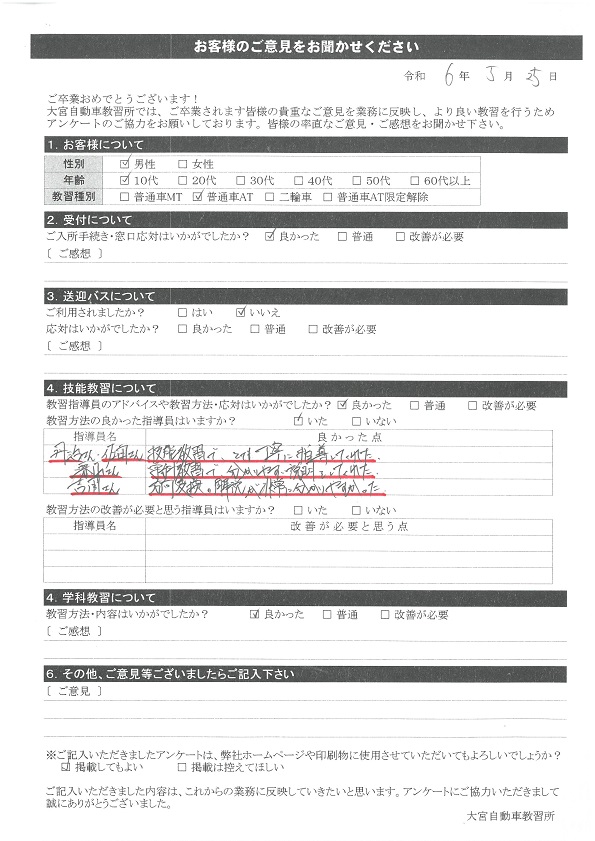 お客様のご意見をお聞かせください
令和 6 年 5 月 25 日
ご卒業おめでとうございます！
大宮自動車教習所では、ご卒業されます皆様の貴重なご意見を業務に反映し、より良い教習を行うため
アンケートのご協力をお願いしております。皆様の率直なご意見・ご感想をお聞かせ下さい。
1. お客様について
性別 ☑ 男性 □ 女性
年齢 ☑ 10代 □ 20代 □ 30代 □ 40代 □ 50代 □ 60代以上
教習種別 □ 普通車MT ☑ 普通車AT □ 二輪車 □ 普通車AT限定解除
2. 受付について
ご入所手続き・窓口応対はいかがでしたか？ ☑ 良かった □ 普通 □ 改善が必要
［ ご感想 ］
3. 送迎バスについて
ご利用されましたか？ □ はい ☑ いいえ
応対はいかがでしたか？ □ 良かった □ 普通 □ 改善が必要
［ ご感想 ］
4. 技能教習について
教習指導員のアドバイスや教習方法・応対はいかがでしたか？ ☑ 良かった □ 普通 □ 改善が必要
教習方法の良かった指導員はいますか？ ☑ いた □ いない
指導員名 良かった点
さん・佐田さん 技能教習で、とても丁寧に指導していただいた
さん 教習で、分かりやすい説明をしていただいた
吉岡さん の解説が非常に分かりやすかった
教習方法の改善が必要と思う指導員はいますか？ □ いた □ いない
指導員名 改善が必要と思う点
4. 学科教習について
教習方法・内容はいかがでしたか？ ☑ 良かった □ 普通 □ 改善が必要
［ ご感想 ］
6. その他、ご意見等ございましたらご記入下さい
［ ご意見 ］
※ご記入いただきましたアンケートは、弊社ホームページや印刷物に使用させていただいてもよろしいでしょうか？
☑ 掲載してもよい □ 掲載は控えてほしい
ご記入いただきました内容は、これからの業務に反映していきたいと思います。アンケートにご協力いただきまして
誠にありがとうございました。
大宮自動車教習所